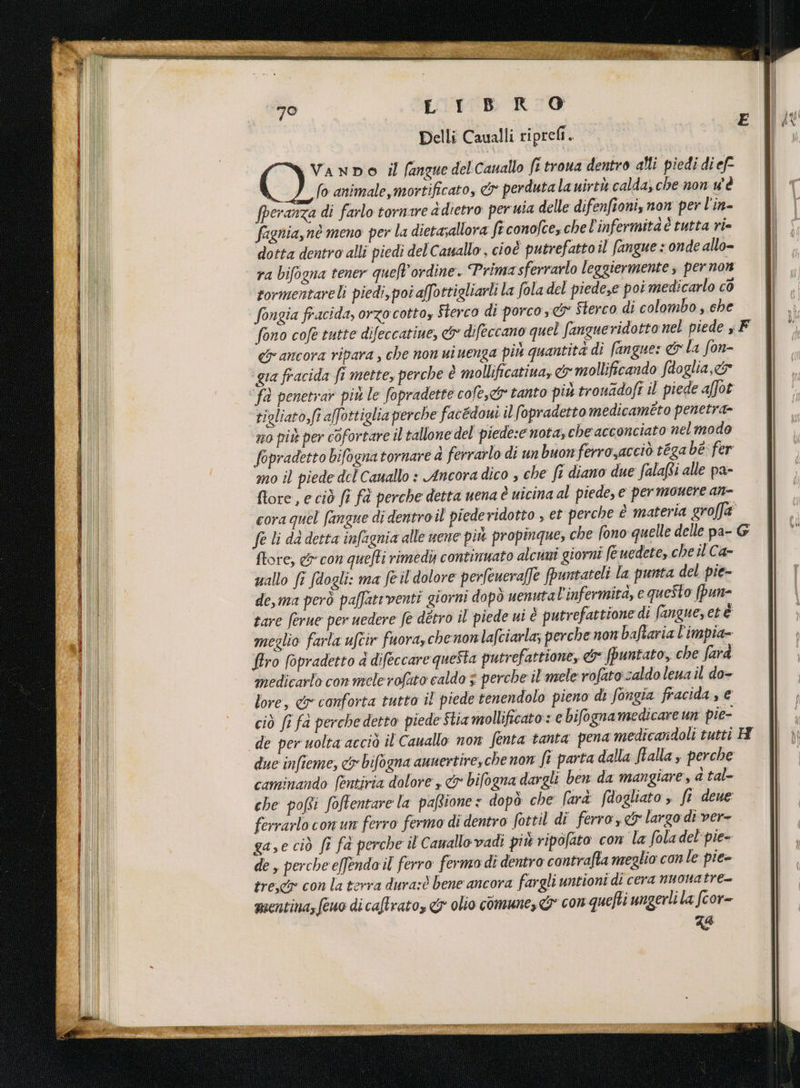 70 LIBRO
E
Delli Caualli ripreſi.
QVANDO il ſangue del Cauallo ſi troua dentro alli piedi di eſ-
ſo animale, mortificato, & perduta la uirtù calda, che non u'è
ſperanza di farlo tornare à dietro per uia delle difenſioni, non per l'in-
ſagnia, nè meno per la dieta; allora ſi conoſce, che l'infermità è tutta ri-
dotta dentro alli piedi del Cauallo, cioè putrefatto il ſangue: onde allo-
ra biſogna tener queſt'ordine. Prima sferrarlo leggiermente, per non
tormentareli piedi, poi aſſottigliarli la ſola del piede, e poi medicarlo cō
ſongia fracida, orzo cotto, ſterco di porco, & ſterco di colombo, che
ſono coſe tutte diſeccatiue, & diſeccano quel ſangue ridotto nel piede, F
& ancora ripara, che non ui uenga più quantità di ſangue: & la ſon-
gia fracida ſi mette, perche è mollificatiua, & mollificando ſdoglia, &
fà penetrar più le ſopradette coſe, & tanto più trouādoſi il piede aſſot
tigliato, ſi aſſottiglia perche facēdoui il ſopradetto medicamēto penetra-
no più per cōfortare il tallone del piede: e nota, che acconciato nel modo
ſopradetto biſogna tornare à ferrarlo di un buon ferro, acciò tēga bē fer
mo il piede del Cauallo: Ancora dico, che ſi diano due ſalaſſi alle pa-
ſtore, e ciò ſi fà perche detta uena è uicina al piede, e per mouere an-
cora quel ſangue di dentro il piede ridotto, et perche è materia groſſa
ſe li dà detta inſagnia alle uene più propinque, che ſono quelle delle pa- G
ſtore, & con queſti rimedij continuato alcuni giorni ſe uedete, che il Ca-
uallo ſi ſdogli: ma ſe il dolore perſeueraſſe ſpuntateli la punta del pie-
de, ma però paſſati venti giorni dopò uenuta l'infermità, e queſto ſpun-
tare ſerue per uedere ſe dētro il piede ui è putrefattione di ſangue, et è
meglio farla uſcir fuora, che non laſciarla; perche non baſtaria l'impia-
ſtro ſopradetto à diſeccare queſta putrefattione, & ſpuntato, che ſarà
medicarlo con mele roſato caldo; perche il mele roſato zaldo leua il do-
lore, & conforta tutto il piede tenendolo pieno di ſongia fracida, e
ciò ſi fà perche detto piede ſtia mollificato: e biſogna medicare un pie-
de per uolta acciò il Cauallo non ſenta tanta pena medicandoli tutti H
due inſieme, & biſogna auuertire, che non ſi parta dalla ſtalla, perche
caminando ſentiria dolore, & biſogna dargli ben da mangiare, à tal-
che poſſi ſoſtentare la paſſione: dopò che ſarà ſdogliato, ſi deue
ferrarlo con un ferro fermo di dentro ſottil di ferro, & largo di ver-
ga, e ciò ſi fà perche il Cauallo vadi più ripoſato con la ſola del pie-
de, perche eſſendo il ferro fermo di dentro contraſta meglio con le pie-
tre, & con la terra dura: è bene ancora fargli untioni di cera nuoua tre-
mentina, ſeuo di caſtrato, & olio comune, & con queſti ungerli la ſcor-
za